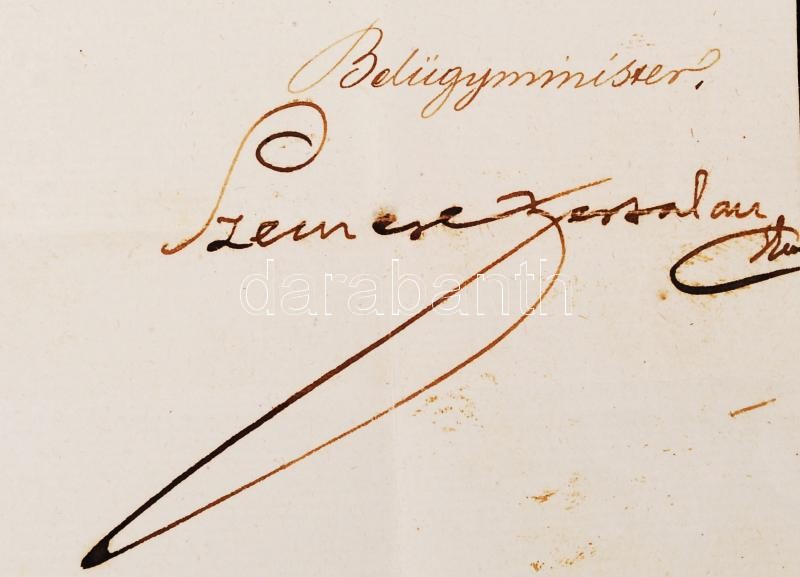 Belügyminister.
Szemere Bertalan
darabanth